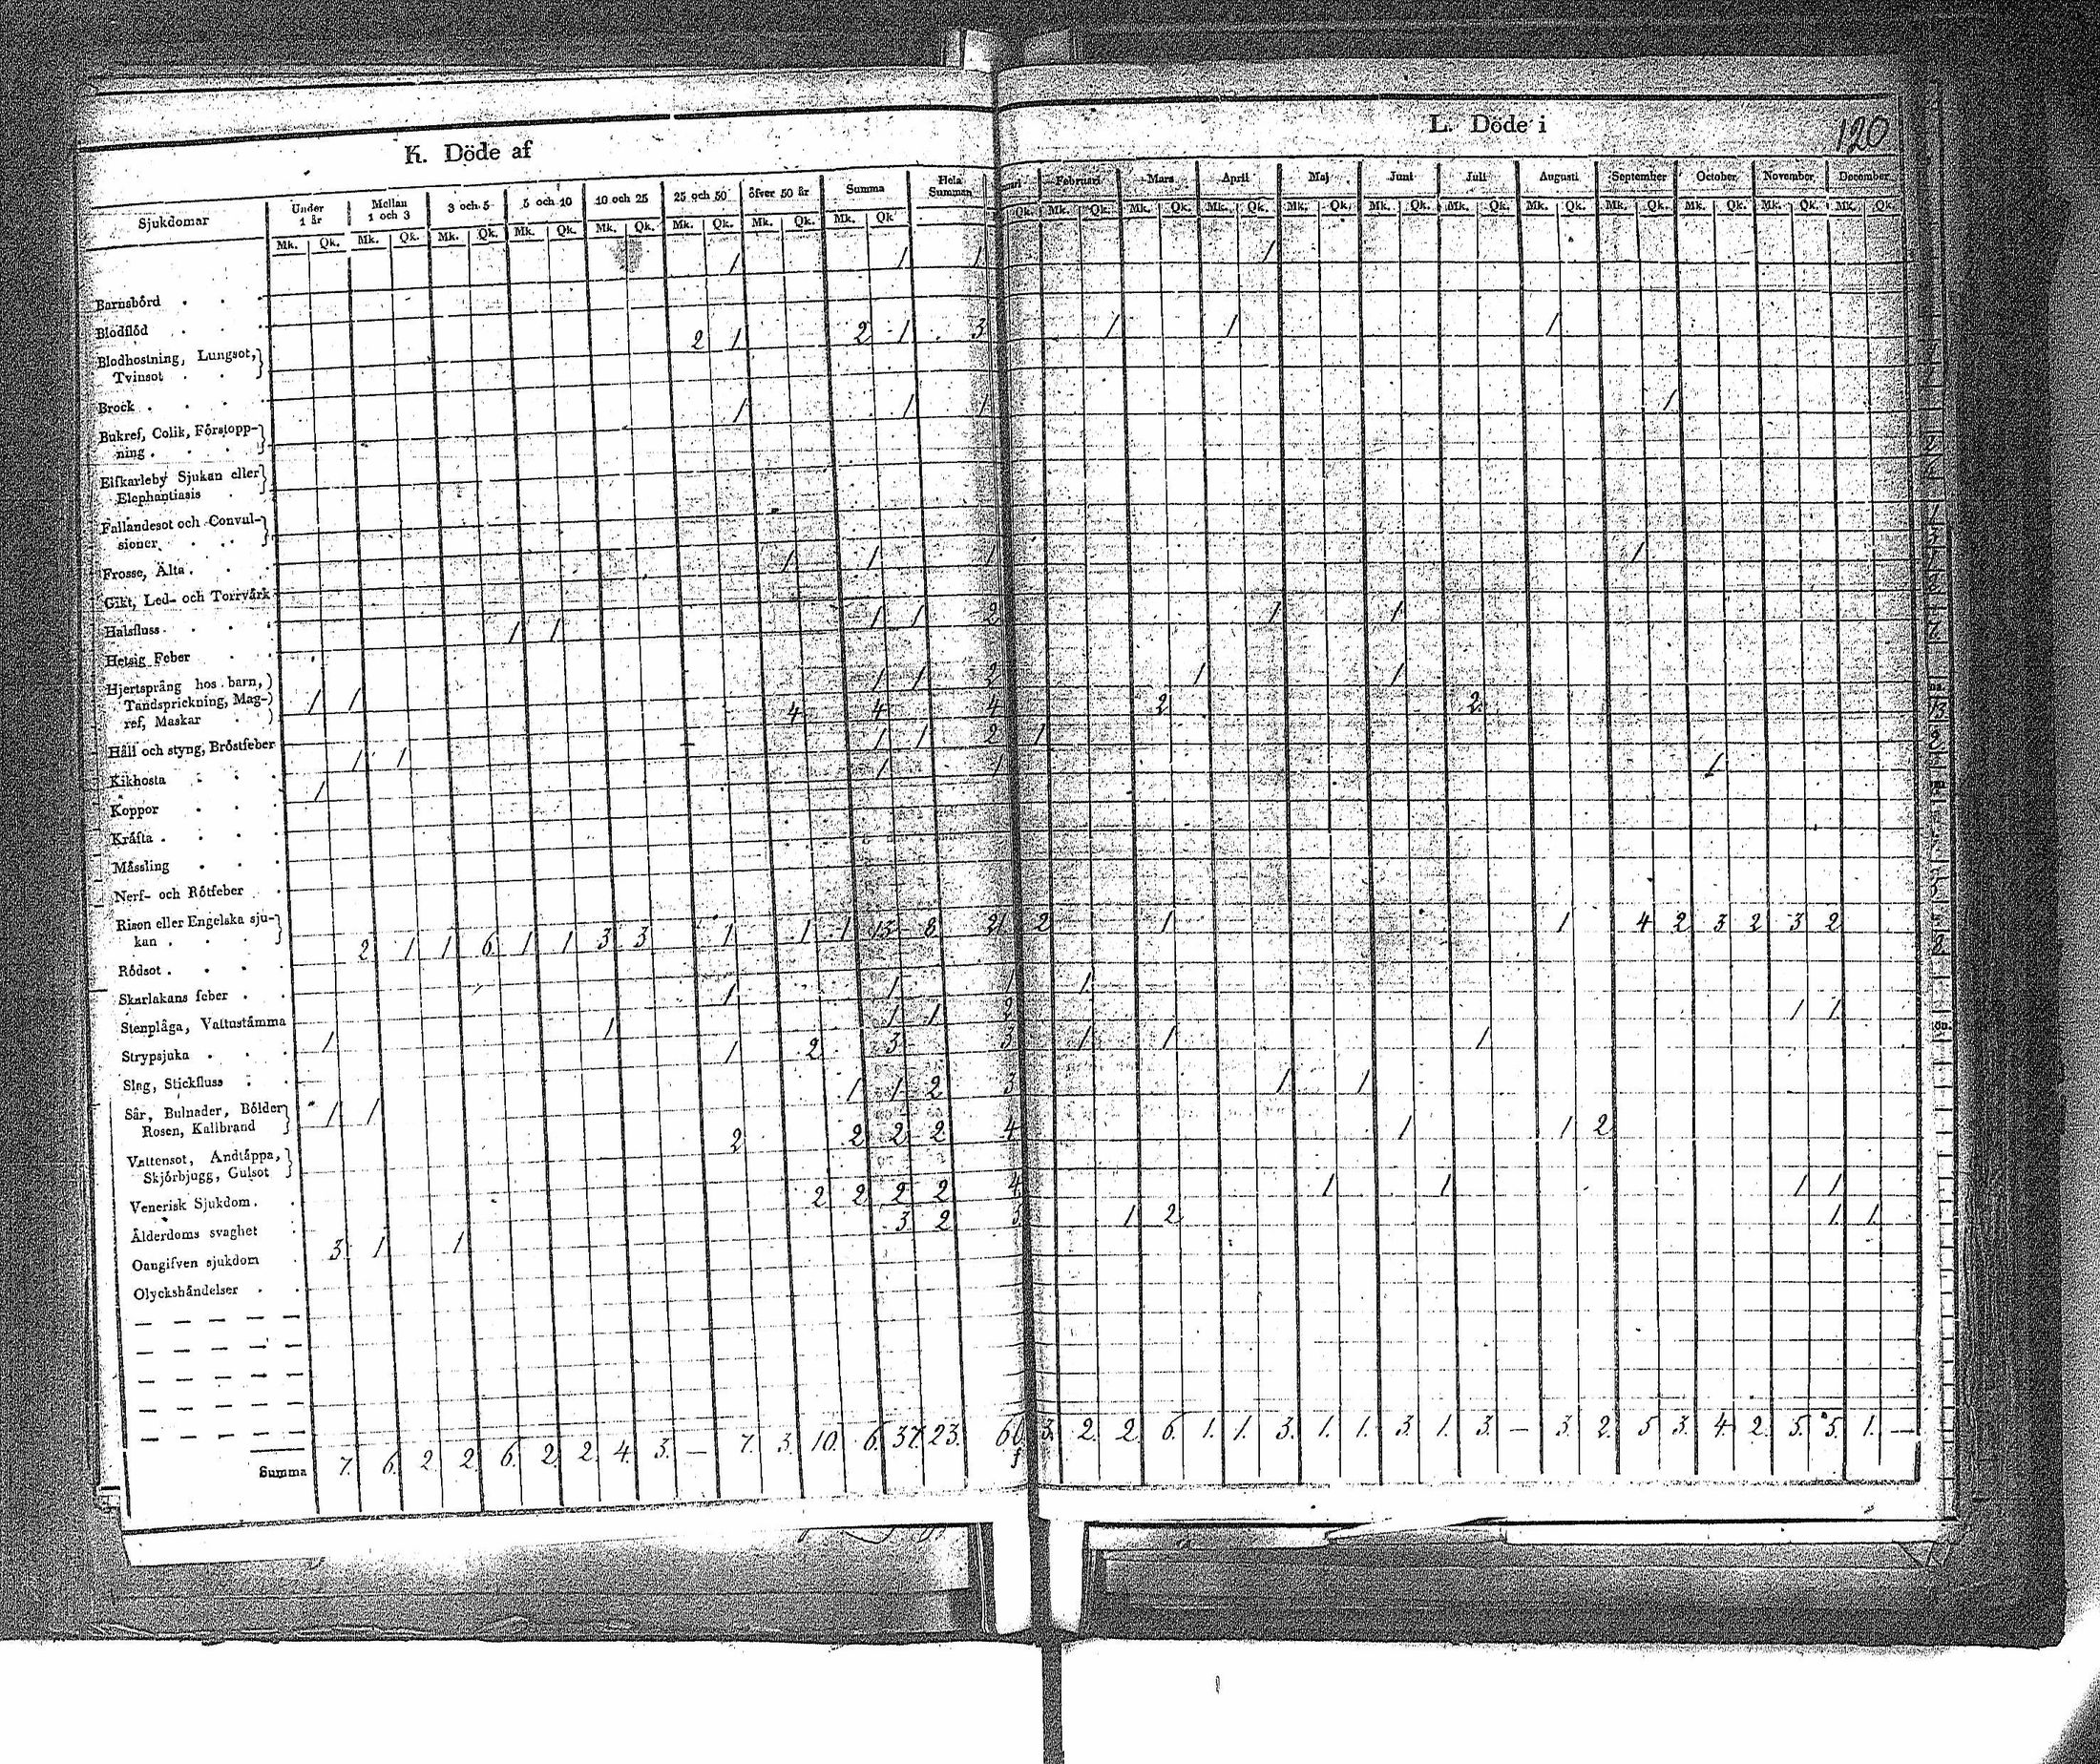 K. Döde af
L. Döde i
120
Sjukdomar Under 1 år Mellan 1 och 3 3 och 5 5 och 10 10 och 25 25 och 50 öfver 50 år Summa Hela Summan Februari Mars April Maj Juni Juli Augusti September October November December
Mk. Qk. Mk. Qk. Mk. Qk. Mk. Qk. Mk. Qk. Mk. Qk. Mk. Qk. Mk. Qk. Qk. Mk. Qk. Mk. Qk. Mk. Qk. Mk. Qk. Mk. Qk. Mk. Qk. Mk. Qk. Mk. Qk. Mk. Qk. Mk. Qk. Mk. Qk.
1 1 1 1
Barnsbörd
Blodflöd
Blodhostning, Lungsot, 2 1 2 1 3 1 1 1
Tvinsot
Brock
Bukref, Colik, Förstopp- 1 1 1 1
ning
Elfkarleby Sjukan eller
Elephantiasis
Fallandesot och Convul-
sioner
Frosse, Älta
Gikt, Led- och Torrvärk 1 1 1 1
Halsfluss 1 1 1 1 2 1 1
Hetsig Feber
Hjertsprång hos barn,
Tandsprickning, Mag- 1 1 1 1 2 1 1
ref, Maskar 4 4 4 2 2
Håll och styng, Bröstfeber
Kikhosta 1 1 1 1 2 1
Koppor 1 1 1 1
Kräfta
Mässling
Nerf- och Rötfeber
Rison eller Engelska sju-
kan
Rödsot 2 1 1 6 1 1 3 3 1 1 1 13 8 21 2 1 1 4 2 3 2 3 2
Skarlakans feber
Stenplåga, Vattustämma 1 1 1 1
Strypsjuka 1 1 1 1 2 1 1
Slag, Stickfluss 1 2 3 3 1 1 1
Sår, Bulnader, Bölder 1 1 1 1 2 3 1 1
Rosen, Kallbrand
Vattensot, Andtäppa, 2 2 2 2 4 1 1 2
Skjörbjugg, Gulsot
Venerisk Sjukdom
Ålderdoms svaghet 2 2 2 2 4 1 1 1 1
Oangifven sjukdom 3 1 1 3 2 5 1 2 1 1
Olyckshändelser
Summa 7. 6. 2. 2. 6. 2. 2. 4. 3. — 7. 3. 10. 6. 37. 23. 60 3. 2. 2. 6. 1. 1. 3. 1. 1. 3. 1. 3. — 3. 2. 5 3. 4. 2. 5. 5. 1. —